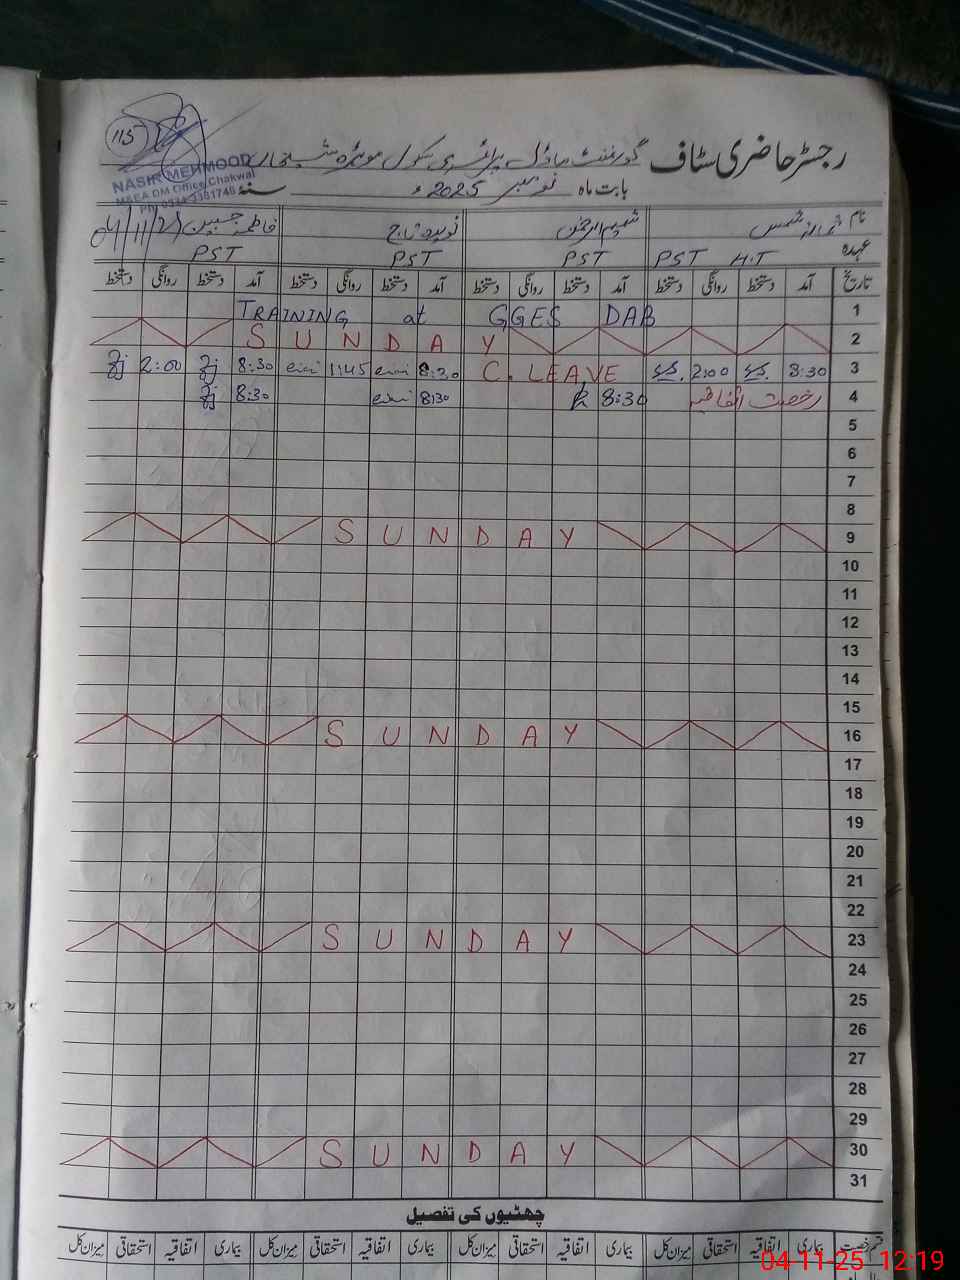 115
رجسٹر حاضری سٹاف گورنمنٹ ماڈل پرائمری سکول موہڑہ
بابت ماہ نومبر 2025ء سنہ
NASIR MEHMOOD
M&EA DM Office Chakwal
نام شمس شمیم الرحمٰن نوید تاج فاطمہ جبین
04/11/25
عہدہ PST H.T PST PST PST
تاریخ آمد دستخط روانگی دستخط آمد دستخط روانگی دستخط آمد دستخط روانگی دستخط آمد دستخط روانگی دستخط
1 TRAINING at GGES DAB
2 SUNDAY
3 8:30 2:00 C. LEAVE 8:30 1:45 8:30 2:00
4 رخصت اتفاقیہ 8:30 8:30 8:30
5
6
7
8
9 SUNDAY
10
11
12
13
14
15
16 SUNDAY
17
18
19
20
21
22
23 SUNDAY
24
25
26
27
28
29
30 SUNDAY
31
چھٹیوں کی تفصیل
قسم رخصت بیماری اتفاقیہ استحقاقی میزان کل بیماری اتفاقیہ استحقاقی میزان کل بیماری اتفاقیہ استحقاقی میزان کل بیماری اتفاقیہ استحقاقی میزان کل
04-11-25 12:19